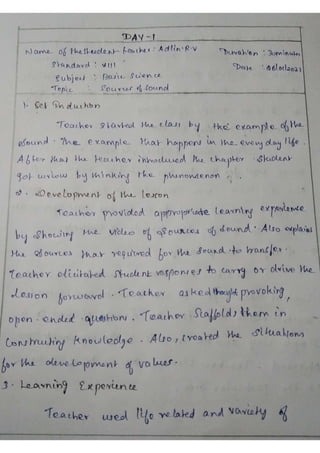 DAY-1
Name of the student-teacher : Adlin R.V Duration : 30 minutes
Standard : VIII Date :
Subject : Basic Science
Topic : Sources of Sound
1. Set Induction
Teacher started the class by the example of the
sound. The example that happens in the everyday life.
After that the teacher introduced the chapter. student
got by thinking the phenomenon.
2. Development of the lesson
Teacher provided appropriate learning experience
by showing the video of sources of sound. Also explains
the sources that required for the sound to transfer.
Teacher elicitated student responses to carry or drive the
lesson forward. Teacher asked thought provoking,
open-ended question. Teacher Scaffolds them in
constructing knowledge. Also, created the situations
for the development of values.
3. Learning Experience
Teacher used life related and variety of